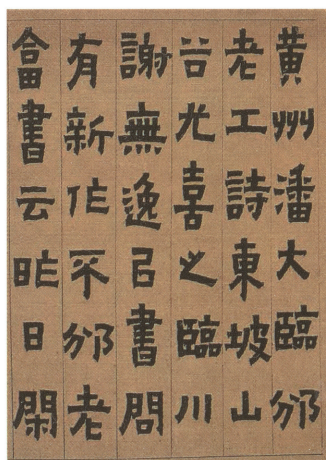 黄州潘大臨邠
老工詩東坡山
谷尤喜之臨川
謝無逸㠯書問
有新作不邠老
畣書云昨日閑